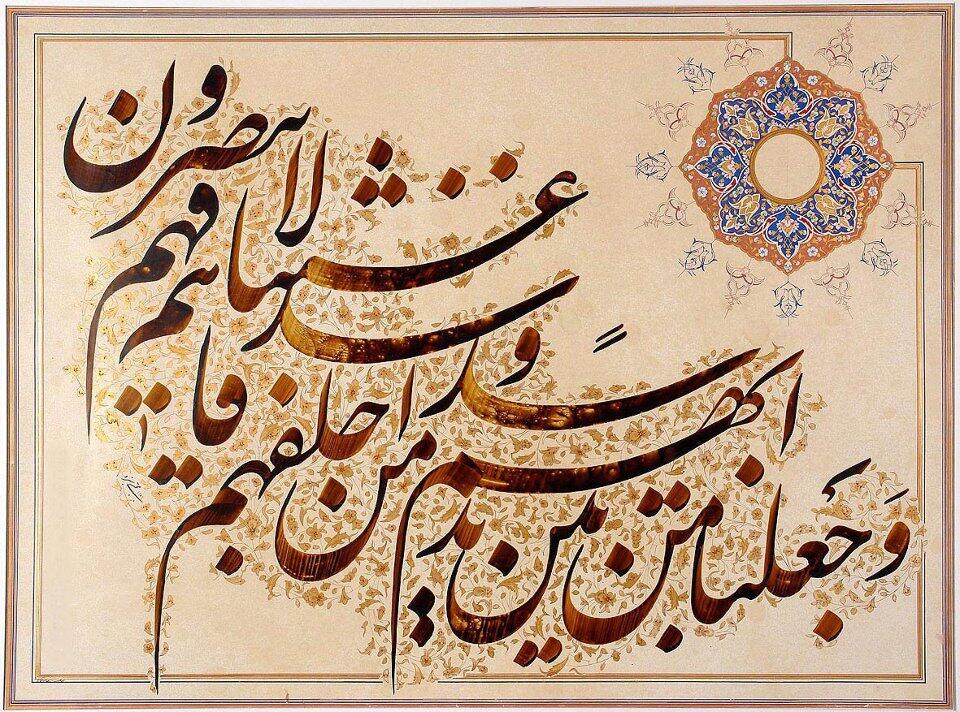 وَجَعلنا من بین ایدیهم سداً
و من خلفهم سدا
فاغشیناهم فهم لا یبصرون